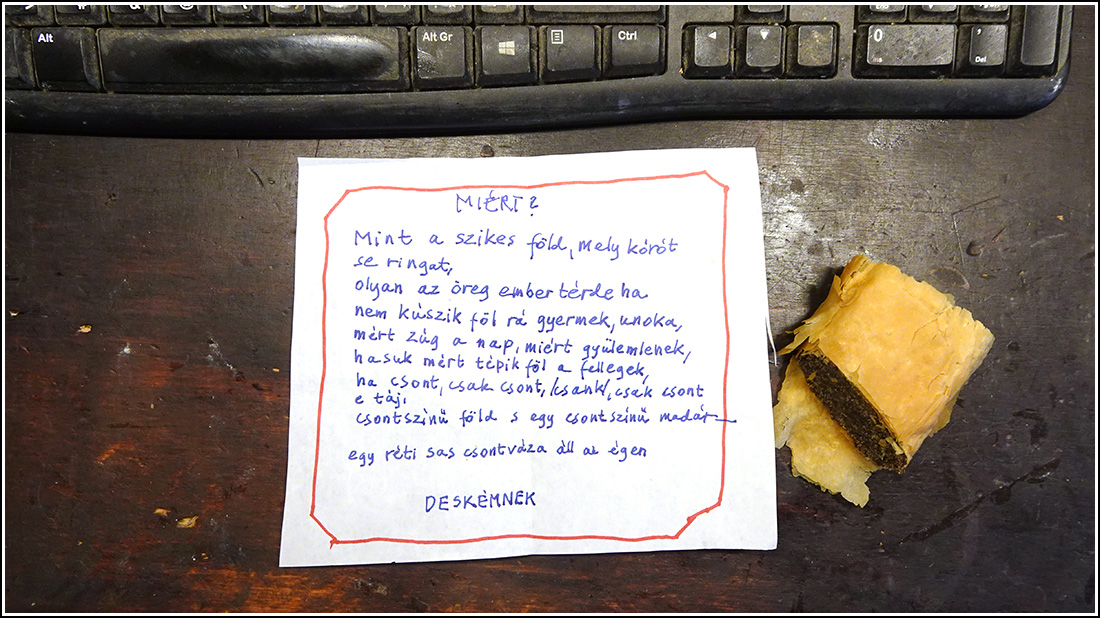 Alt
Alt Gr
Ctrl
0
Ins
Del
MIÉRT?
Mint a szikes föld, mely kórót
se ringat,
olyan az öreg ember térde ha
nem kúszik föl rá gyermek, unoka,
mért zúg a nap, miért gyülemlenek,
hasuk mért tépik föl a fellegek,
ha csont, csak csont, /csank/, csak csont
e táj,
csontszínű föld s egy csontszínű madár—
egy réti sas csontváza áll az égen
DESKÉMNEK